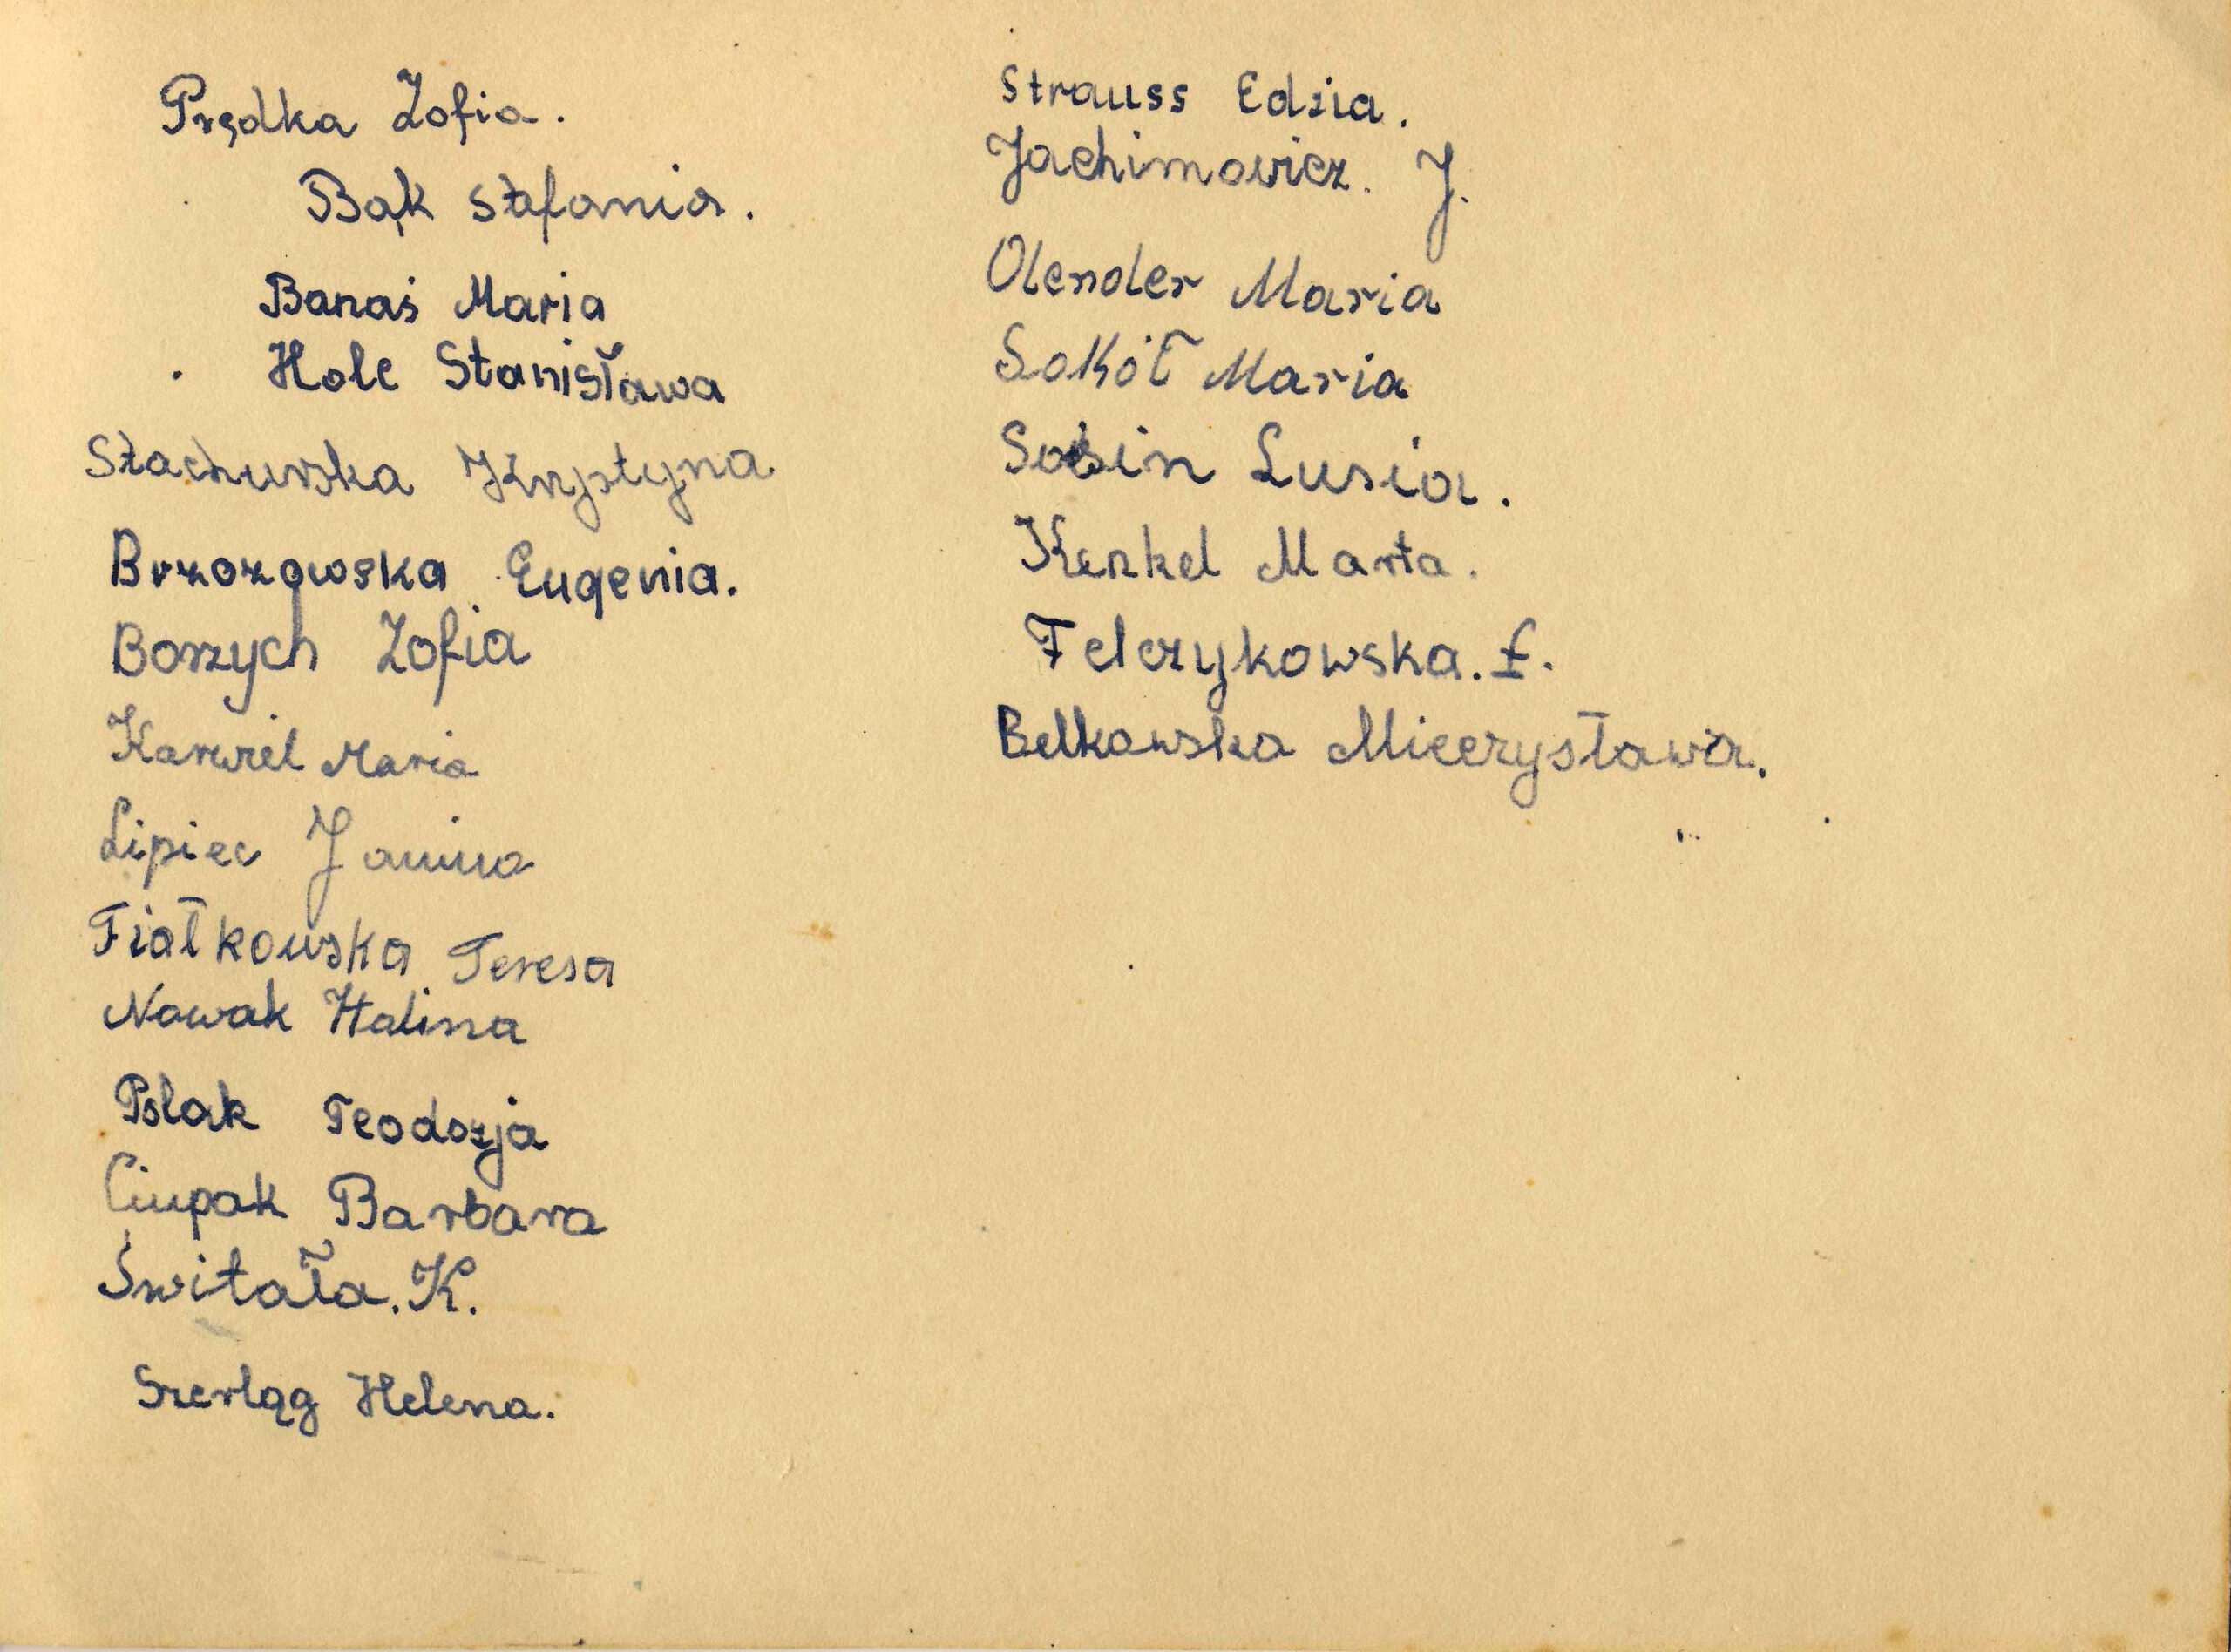 Prędka Zofia.
Bąk Stefania.
Banaś Maria
Hole Stanisława
Stachurska Krystyna
Brzozowska Eugenia.
Borzych Zofia
Karwiel Maria
Lipiec Janina
Fiałkowska Teresa
Nowak Halina
Polak Teodozja
Ciupak Barbara
Świtała. K.
Szerląg Helena.
Strauss Edzia.
Jachimowicz. J.
Olender Maria
Sokół Maria
Lusia.
Kenkel Marta.
Felczykowska. Ł.
Belkowska Mieczysława.